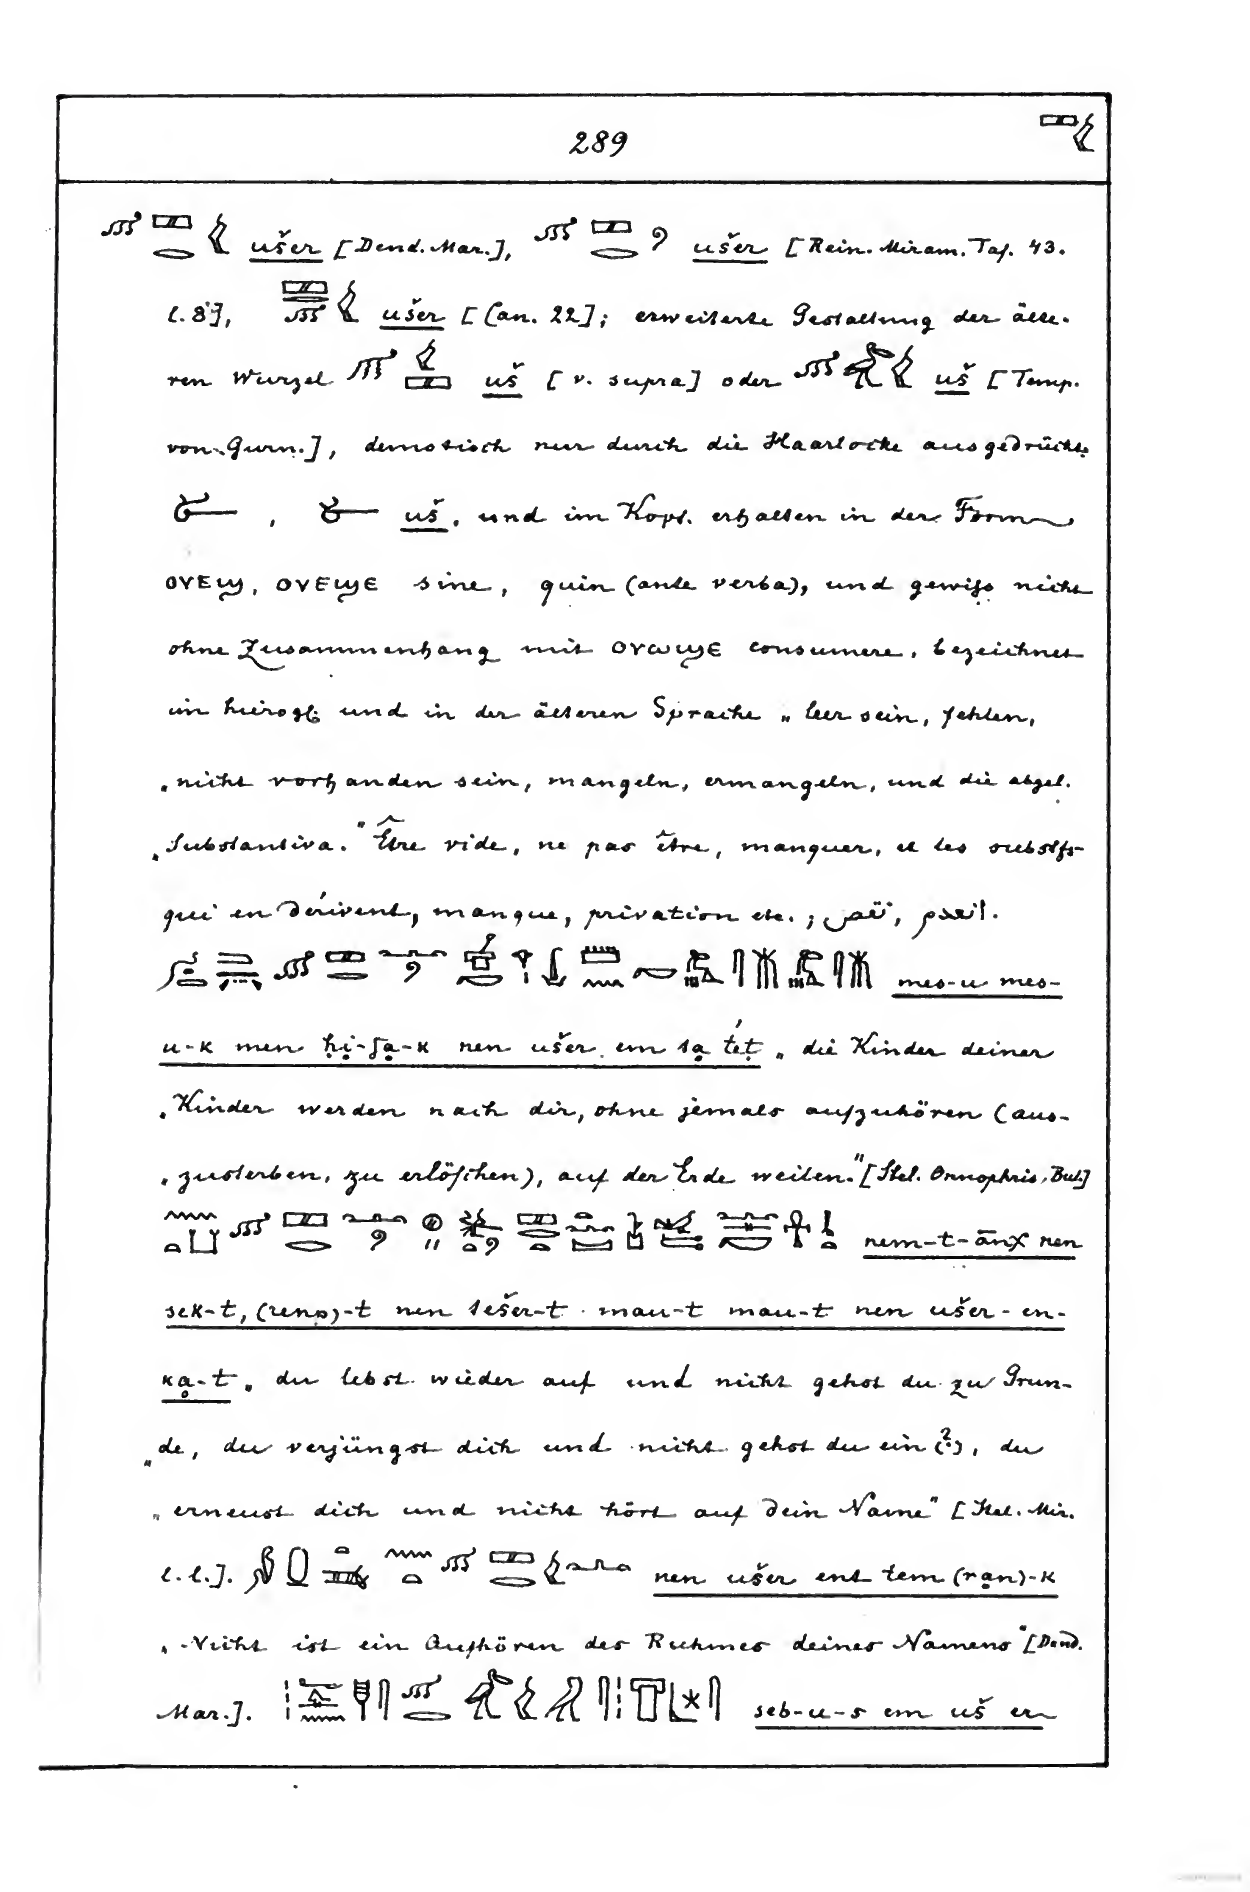 289
ušer [Dend. Mar.], ušer [Rein. Miram. Taf. 43.
l. 8], ušer [Can. 22]; erweiterte Gestaltung der älte-
ren Wurzel uš [v. supra] oder uš [Temp.
von Gurn.], demotisch nur durch die Haarlocke ausgedrückt
, uš, und im Kopt. erhalten in der Form
ⲟⲩⲉϣ, ⲟⲩⲉϣⲉ sine, quin (ante verba), und gewiss nicht
ohne Zusammenhang mit ⲟⲩⲱϣⲉ consumere, bezeichnet
im hierogl. und in der älteren Sprache „leer sein, fehlen,
„nicht vorhanden sein, mangeln, ermangeln, und die abgel.
„Substantiva." Être vide, ne pas être, manquer, et les substfs
qui en dérivent, manque, privation etc.;
mes-u mes-
u-k men ḥi-sa-k nen ušer em ta tet „die Kinder deiner
„Kinder werden nach dir, ohne jemals aufzuhören (aus-
„zusterben, zu erlöschen), auf der Erde weilen." [Stel. Onnophris, Bul.]
nem-t-ānχ nen
sek-t, (renp)-t nen tešer-t mau-t mau-t nen ušer-en-
ka-t „du lebst wieder auf und nicht gehst du zu Grun-
„de, du verjüngst dich und nicht gehst du ein (?), du
„erneust dich und nicht hört auf dein Name" [Stel. Mir.
l.l.]. nen ušer ent tem (ran)-k
„Nicht ist ein Aufhören des Ruhmes deines Namens" [Dend.
Mar.]. seb-u-s em uš er